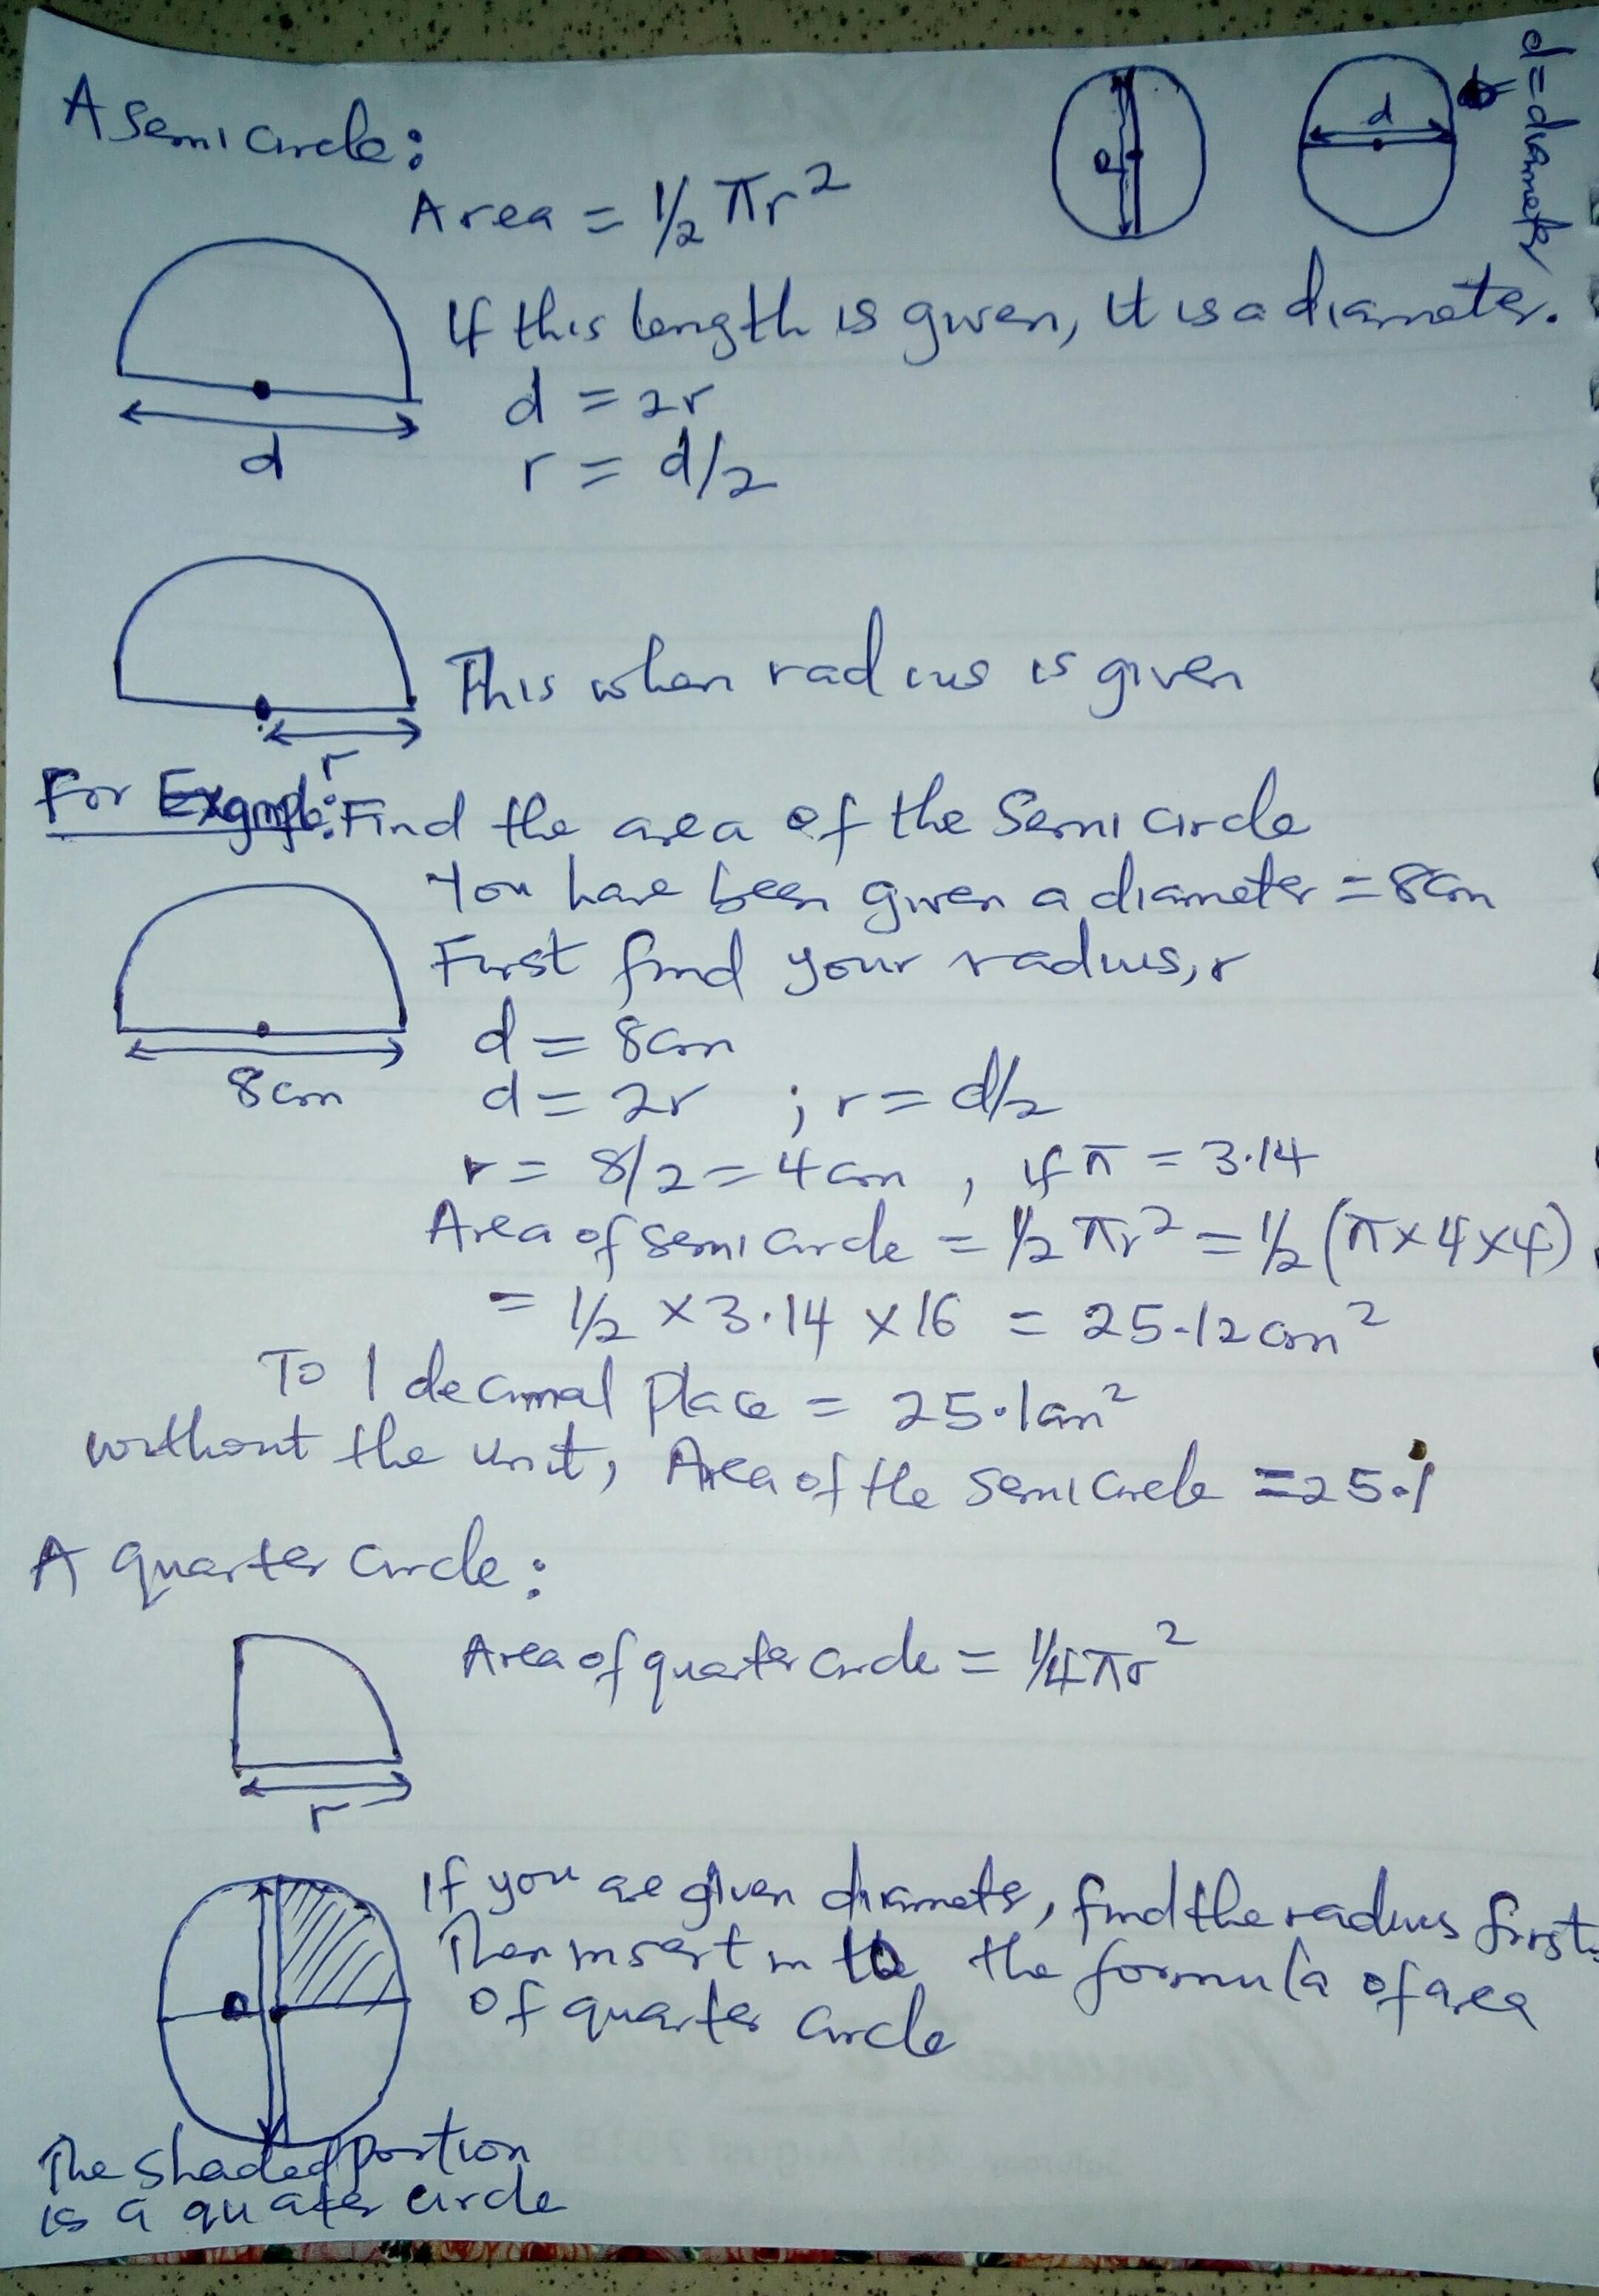 A Semi Circle:
d = diameter
d
d
Area = 1/2 πr²
If this length is given, it is a diameter.
d = 2r
r = d/2
d
This when radius is given
r
For Example: Find the area of the Semi Circle
You have been given a diameter = 8cm
First find your radius, r
d = 8cm
8cm
d = 2r ; r = d/2
r = 8/2 = 4cm , if π = 3.14
Area of semi circle = 1/2 πr² = 1/2 (π x 4 x 4)
= 1/2 x 3.14 x 16 = 25.12cm²
To 1 decimal place = 25.1cm²
without the unit, Area of the semi circle = 25.1
A quarter circle:
Area of quarter circle = 1/4πr²
r
If you are given diameter, find the radius first.
Then insert in the formula of area
of quarter circle
The shaded portion
is a quater circle